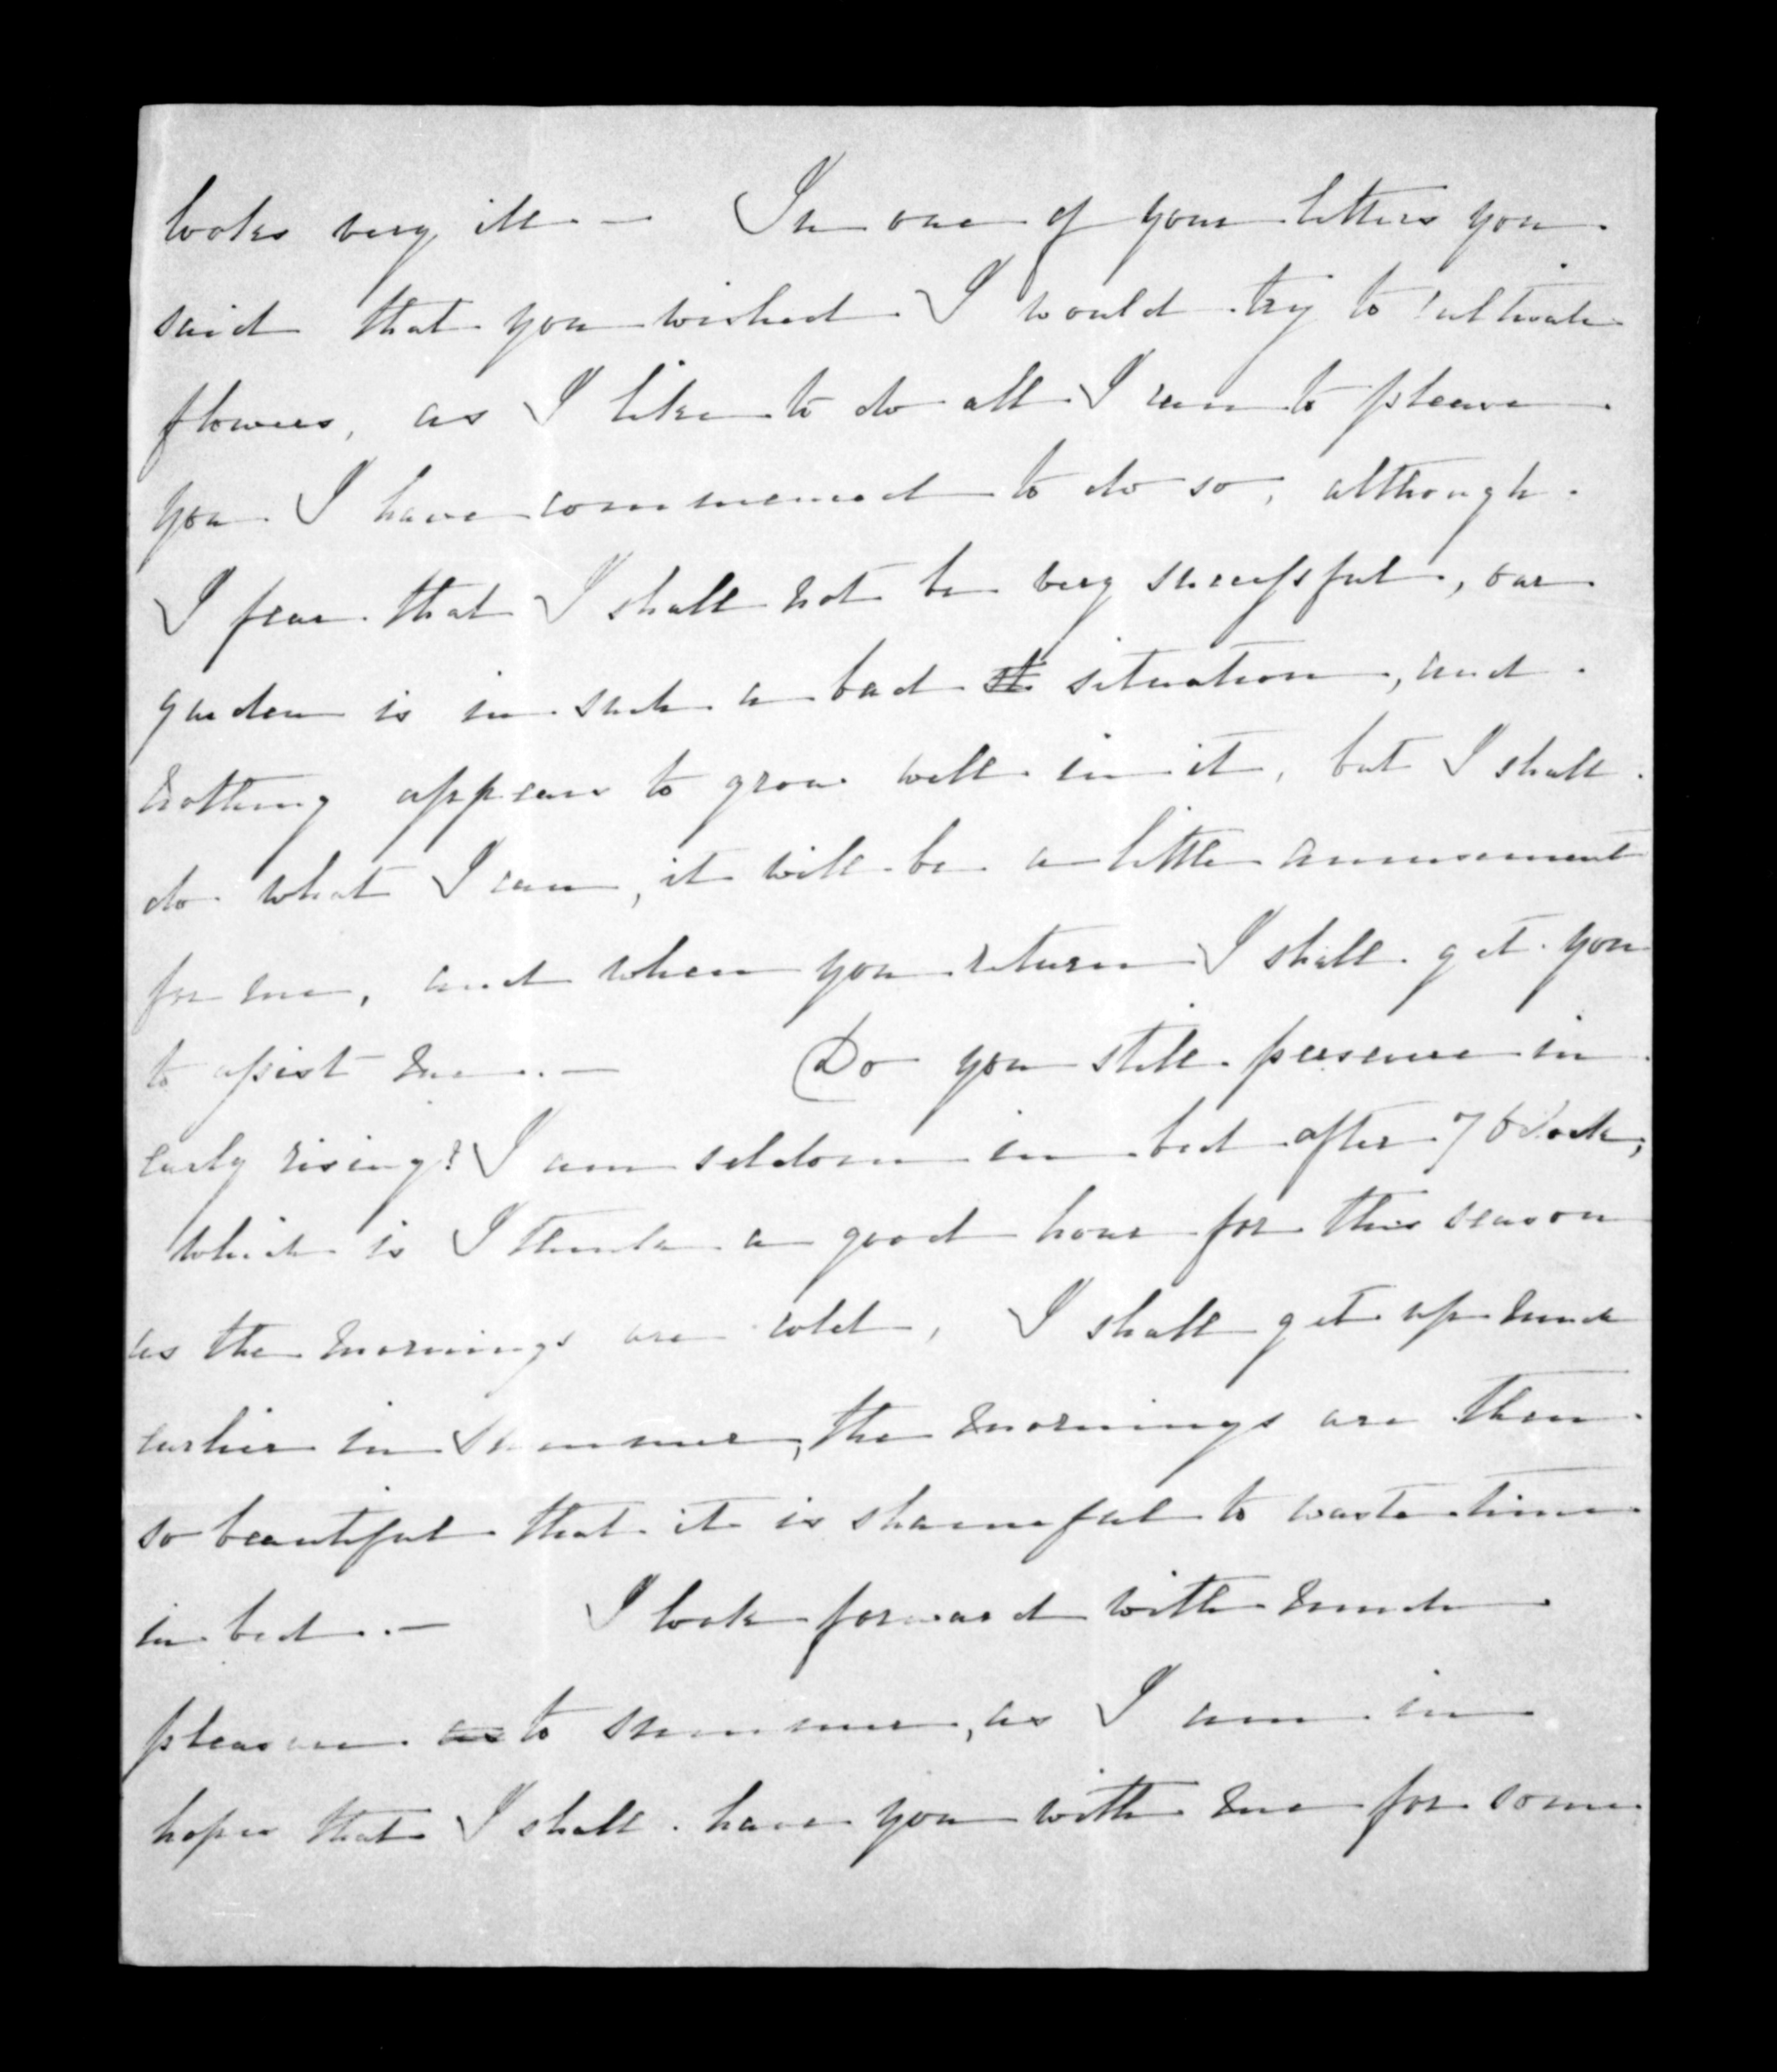 looks very ill. — In one of your letters you
said that you wished I would try to cultivate
flowers, as I like to do all I can to please
you I have commenced to do so, although
I fear that I shall not be very successful, our
garden is in such a bad st situation, and
nothing appears to grow well in it, but I shall
do what I can, it will be a little amusement
for me, and when you return I shall get you
to assist me. — Do you still persevere in
early rising? I am seldom in bed after 7 oClock,
which is I think a good hour for this season
as the mornings are cold, I shall get up much
earlier in Summer, the mornings are then
so beautiful that it is shameful to waste time
in bed. — I look forward with much
pleasure as to summer, as I am in
hopes that I shall have you with me for some